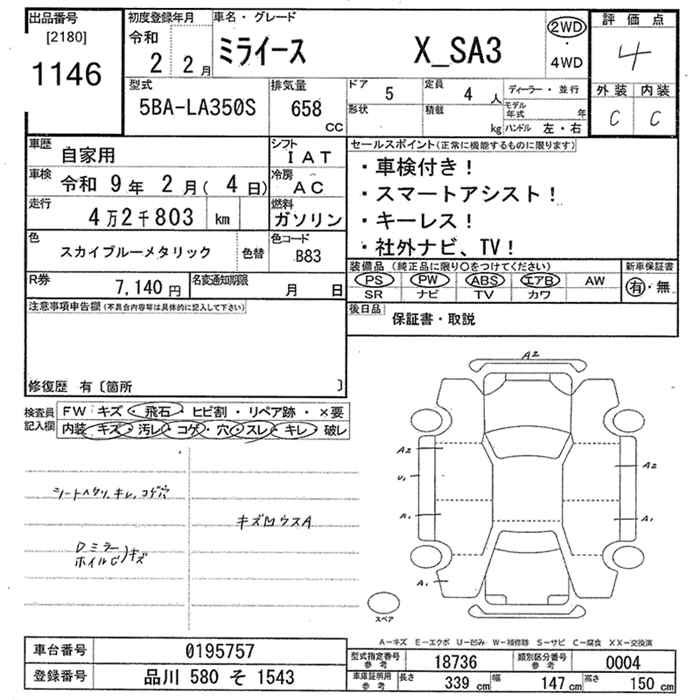 出品番号
[2180]
1146
初度登録年月
令和
2 2月
車名・グレード
ミライース X_SA3
2WD
・
4WD
評価点
4
外装 内装
C C
型式
5BA-LA350S
排気量
658
CC
ドア 5
定員 4 人
形状
積載 kg
ディーラー・並行
モデル年式 年
ハンドル 左・右
車歴
自家用
シフト
IAT
車検 令和 9年 2月( 4日)
冷房
AC
走行
4万2千803 km
燃料
ガソリン
色
スカイブルーメタリック
色替
色コード
B83
R券
7,140円
名変通知期限
月 日
セールスポイント(正常に機能するものに限ります)
・車検付き!
・スマートアシスト!
・キーレス!
・社外ナビ、TV!
装備品 (純正品に限り○をつけてください)
PS PW ABS エアB AW
SR ナビ TV カワ
新車保証書
有・無
後日品
保証書・取説
注意事項申告欄(不具合内容等は具体的に記入して下さい)
修復歴 有〔箇所 〕
検査員
記入欄
FW キズ・飛石・ヒビ割・リペア跡・×要
内装 キズ・汚レ・コゲ・穴・スレ・キレ・破レ
シートヘタリ、キレ、コゲ穴
Dミラー
ホイルC)キズ
キズMウスA
A2
A2
U1
A1
A1
A2
A1
スペア
A−キズ E−エクボ U−凹み W−補修跡 S−サビ C−腐食 XX−交換済
車台番号 0195757
登録番号 品川 580 そ 1543
型式指定番号
参考
18736
類別区分番号
参考
0004
車庫証明用
参考
長さ 339 cm
幅 147 cm
高さ 150 cm